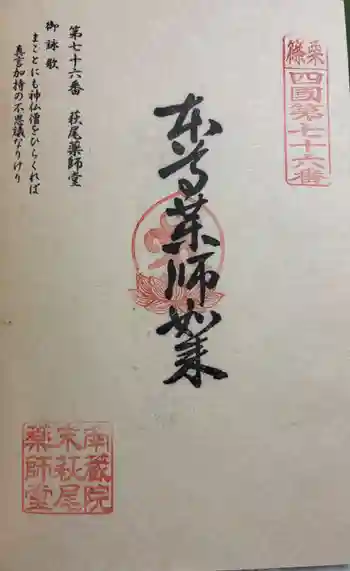 篠栗
四國第七十六番
本尊薬師如来
第七十六番　萩尾薬師堂
御詠歌
まことにも神仏僧をひらくれば
真言加持の不思議なりけり
南蔵院
末萩尾
薬師堂